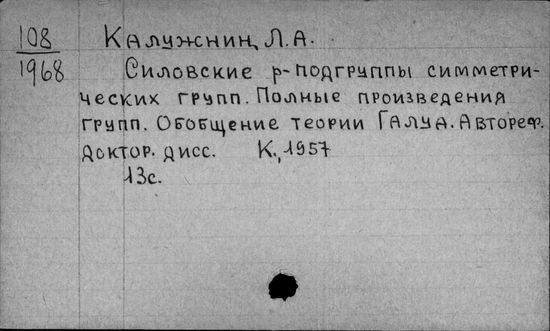 108 Калужнин, Л.А.
1968 Силовские р-подгруппы симметри-
ческих групп. Полные произведения
групп. Обобщение теории Галуа. Автореф.
доктор. дисс. К., 1957
13с.